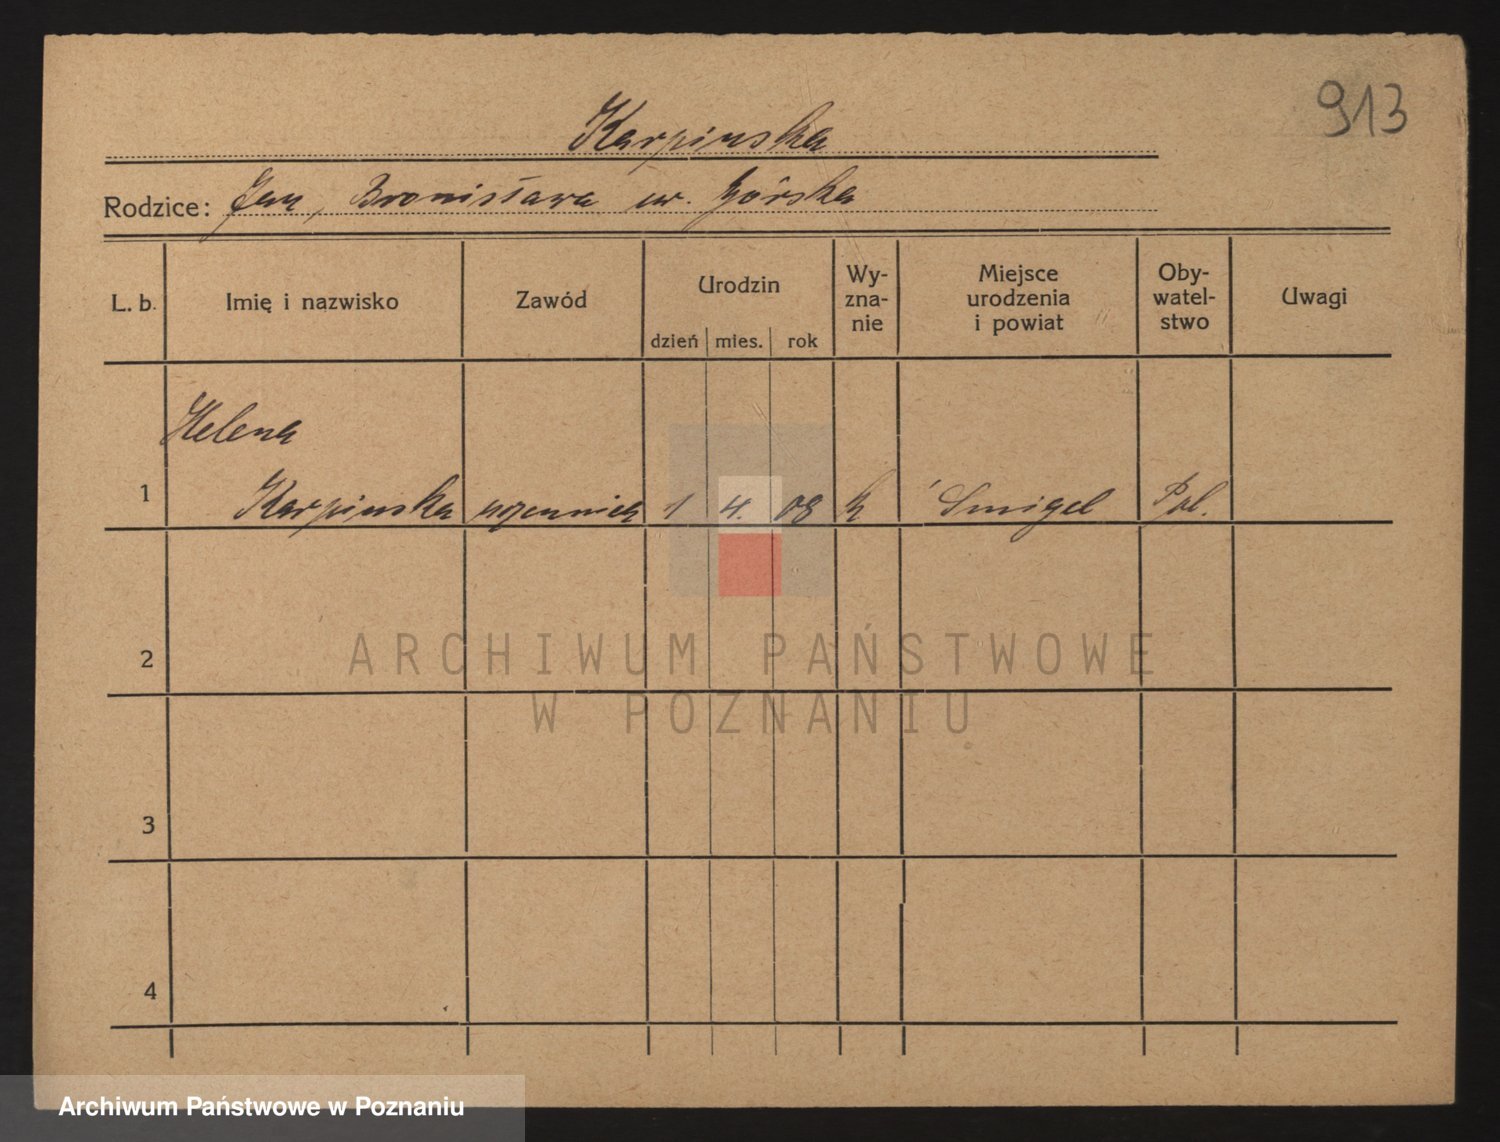 913
Karpinska
Rodzice: Jan, Bronisława ur. Górska
L. b.
Imię i nazwisko
Zawód
Urodzin
dzień
mies.
rok
Wy-
zna-
nie
Miejsce
urodzenia
i powiat
Oby-
watel-
stwo
Uwagi
Helena
1 Karpinska 1 4. 08 k Śmigel Pol.
2
3
4
ARCHIWUM PAŃSTWOWE
W POZNANIU
Archiwum Państwowe w Poznaniu